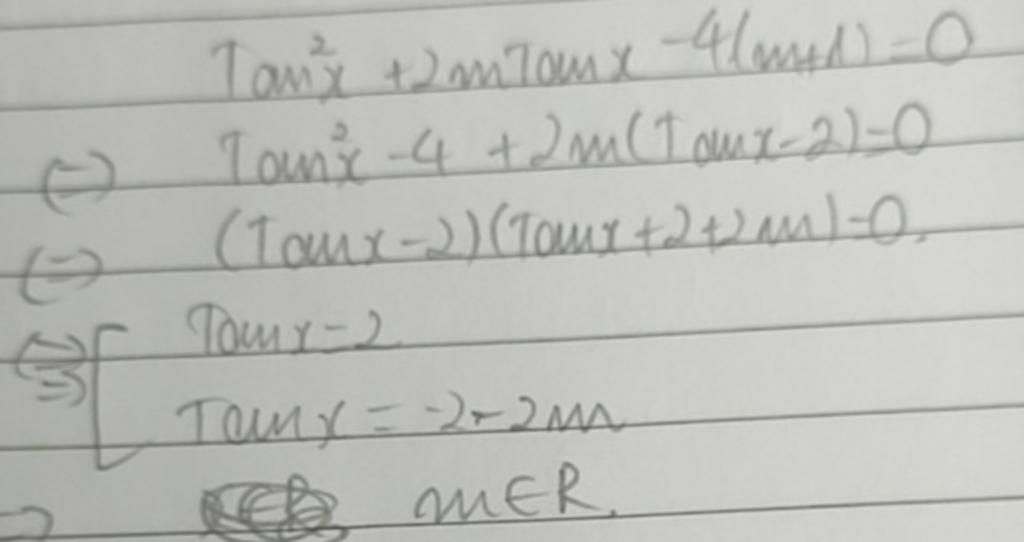 Tan²x + 2mTanx - 4(m+1) = 0
(=) Tan²x - 4 + 2m(Tanx - 2) = 0
(=) (Tanx - 2)(Tanx + 2 + 2m) = 0.
(=) [ Tanx = 2
Tanx = -2 - 2m
=) m ∈ R.